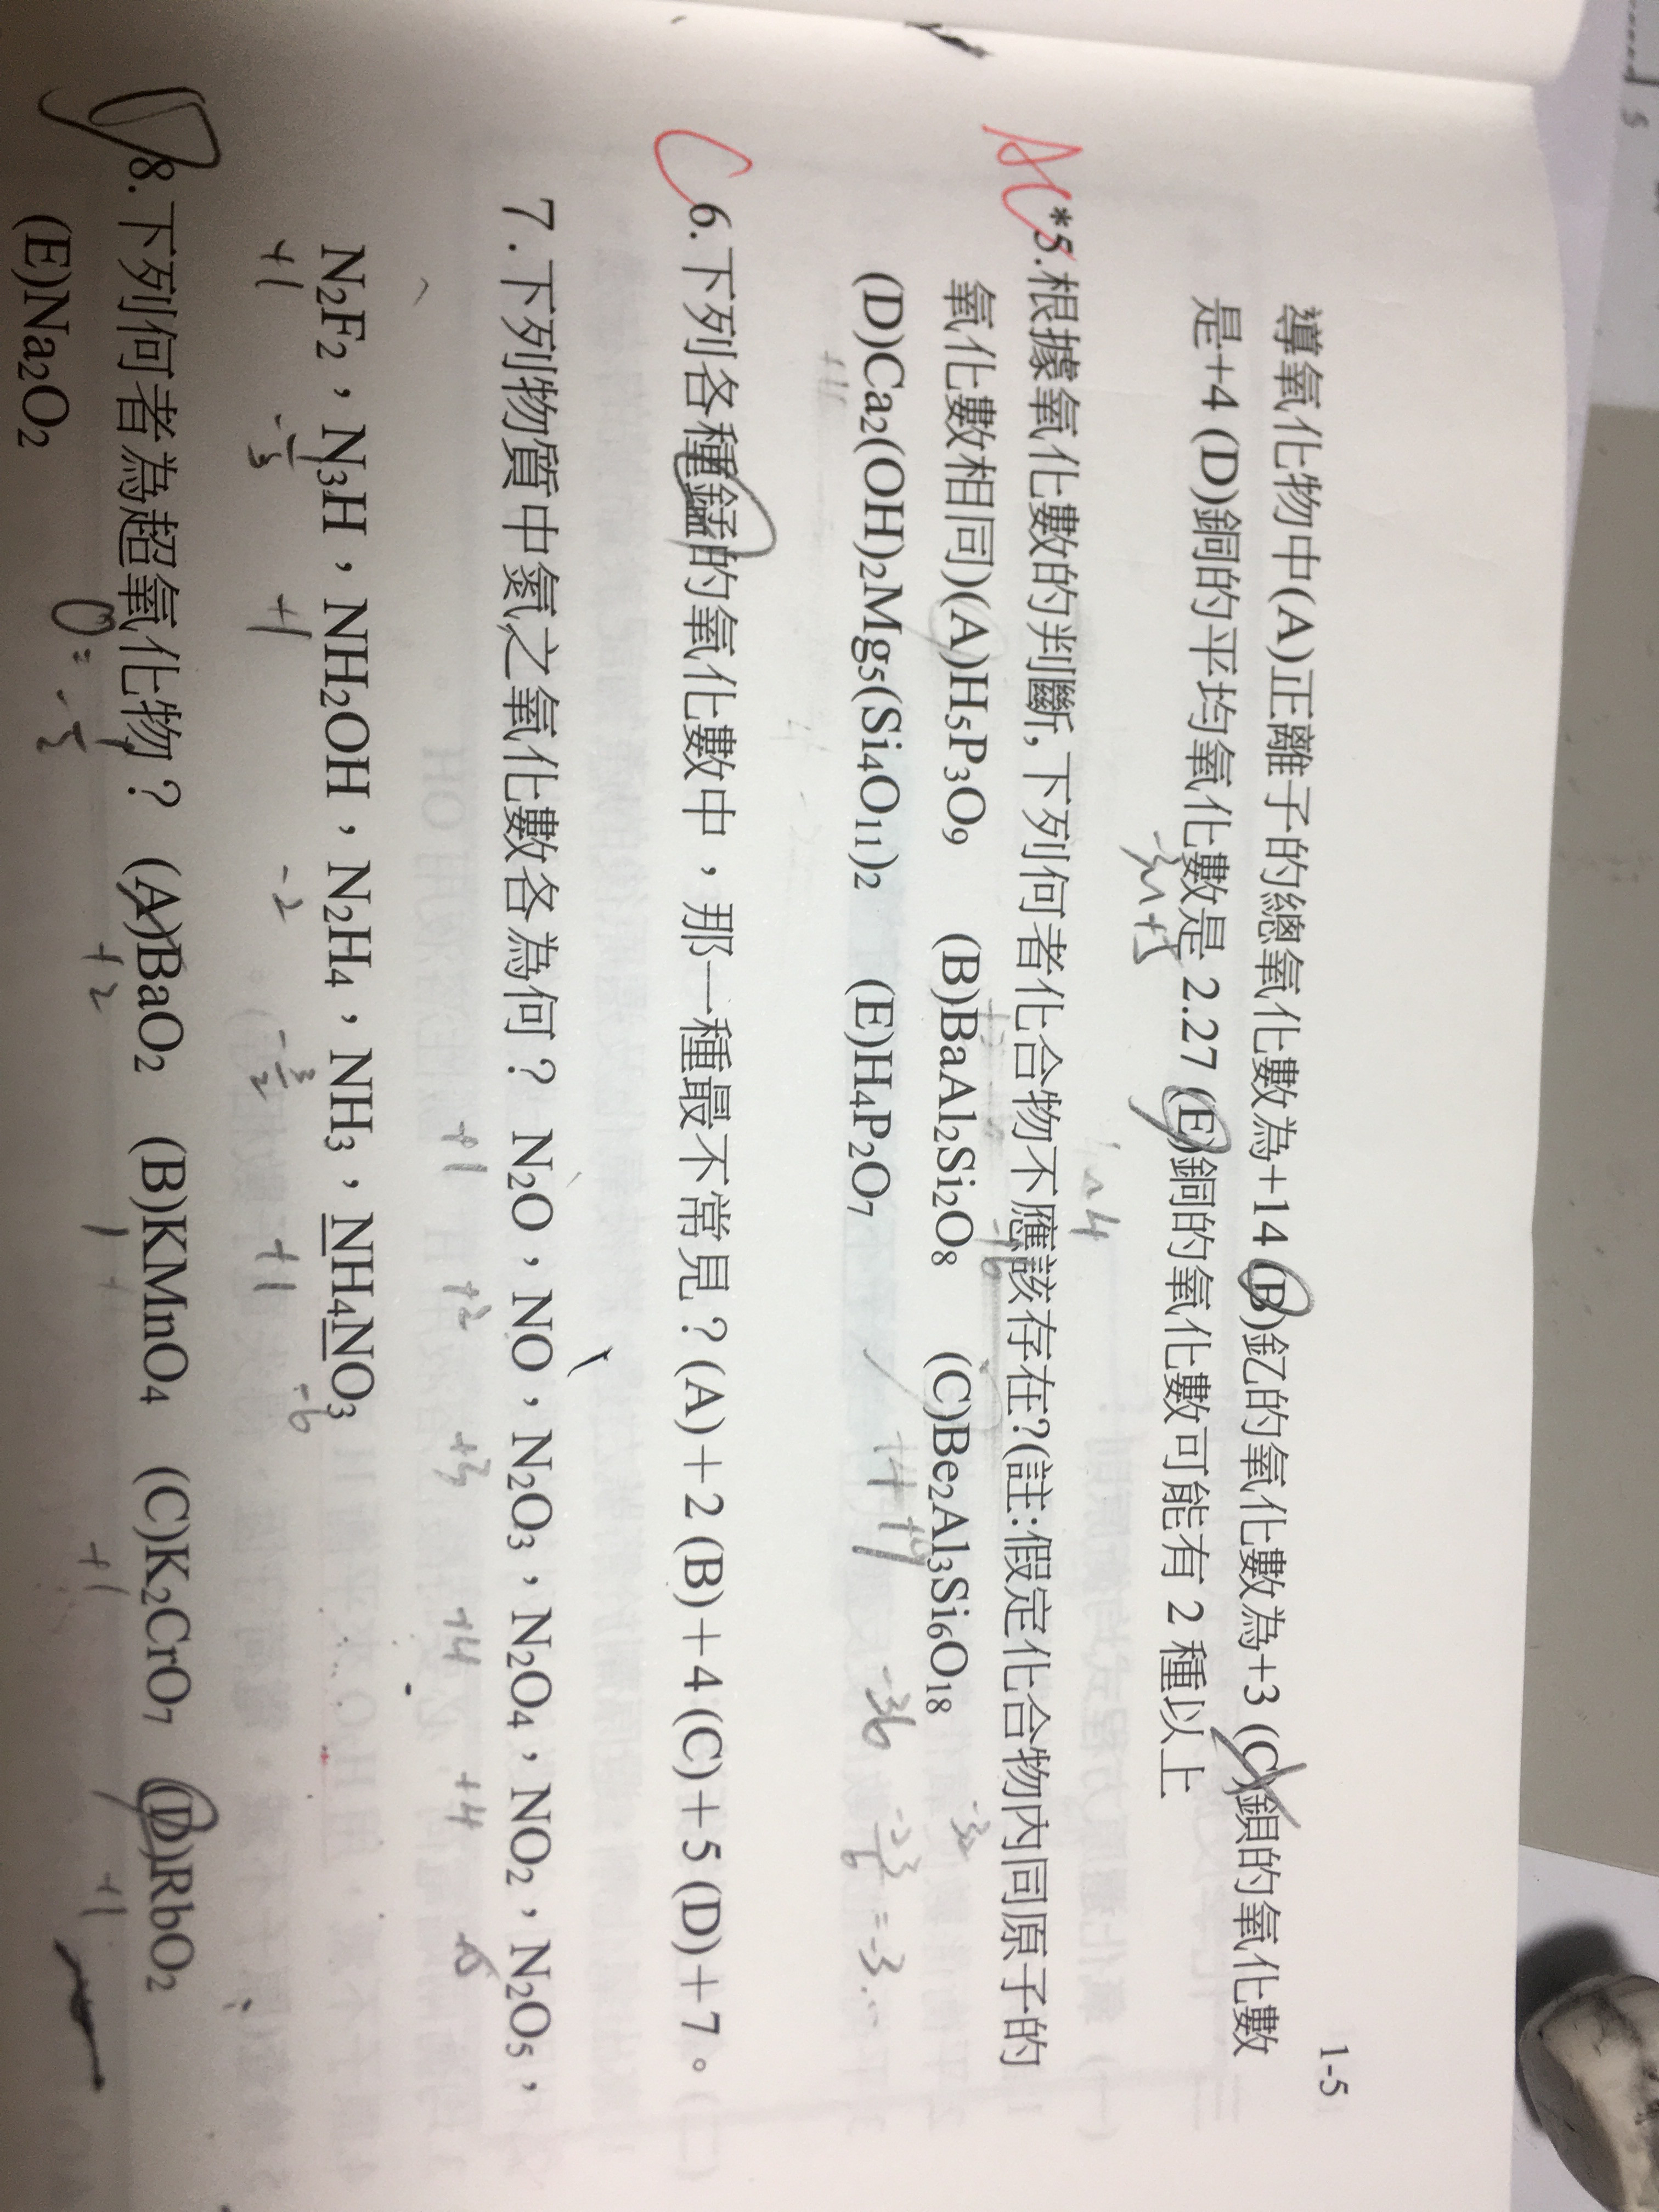 1-5
導氧化物中(A)正離子的總氧化數為+14 (B)釔的氧化數為+3 (C)鋇的氧化數
是+4 (D)銅的平均氧化數是 2.27 (E)銅的氧化數可能有 2 種以上
AC
*5.根據氧化數的判斷,下列何者化合物不應該存在?(註:假定化合物內同原子的
氧化數相同)(A)H₅P₃O₉ (B)BaAl₂Si₂O₈ (C)Be₂Al₃Si₆O₁₈
(D)Ca₂(OH)₂Mg₅(Si₄O₁₁)₂ (E)H₄P₂O₇
+4 +9 -36
C
6.下列各種錳的氧化數中,那一種最不常見?(A)+2 (B)+4 (C)+5 (D)+7。
7.下列物質中氮之氧化數各為何? N₂O,NO,N₂O₃,N₂O₄,NO₂,N₂O₅,
+1 +2 +3 +4 +4
N₂F₂,N₃H,NH₂OH,N₂H₄,NH₃,NH₄NO₃
+1 -1/3 +1 -2 +1 -6
8.下列何者為超氧化物? (A)BaO₂ (B)KMnO₄ (C)K₂CrO₇ (D)RbO₂
+2 +1 +1
(E)Na₂O₂